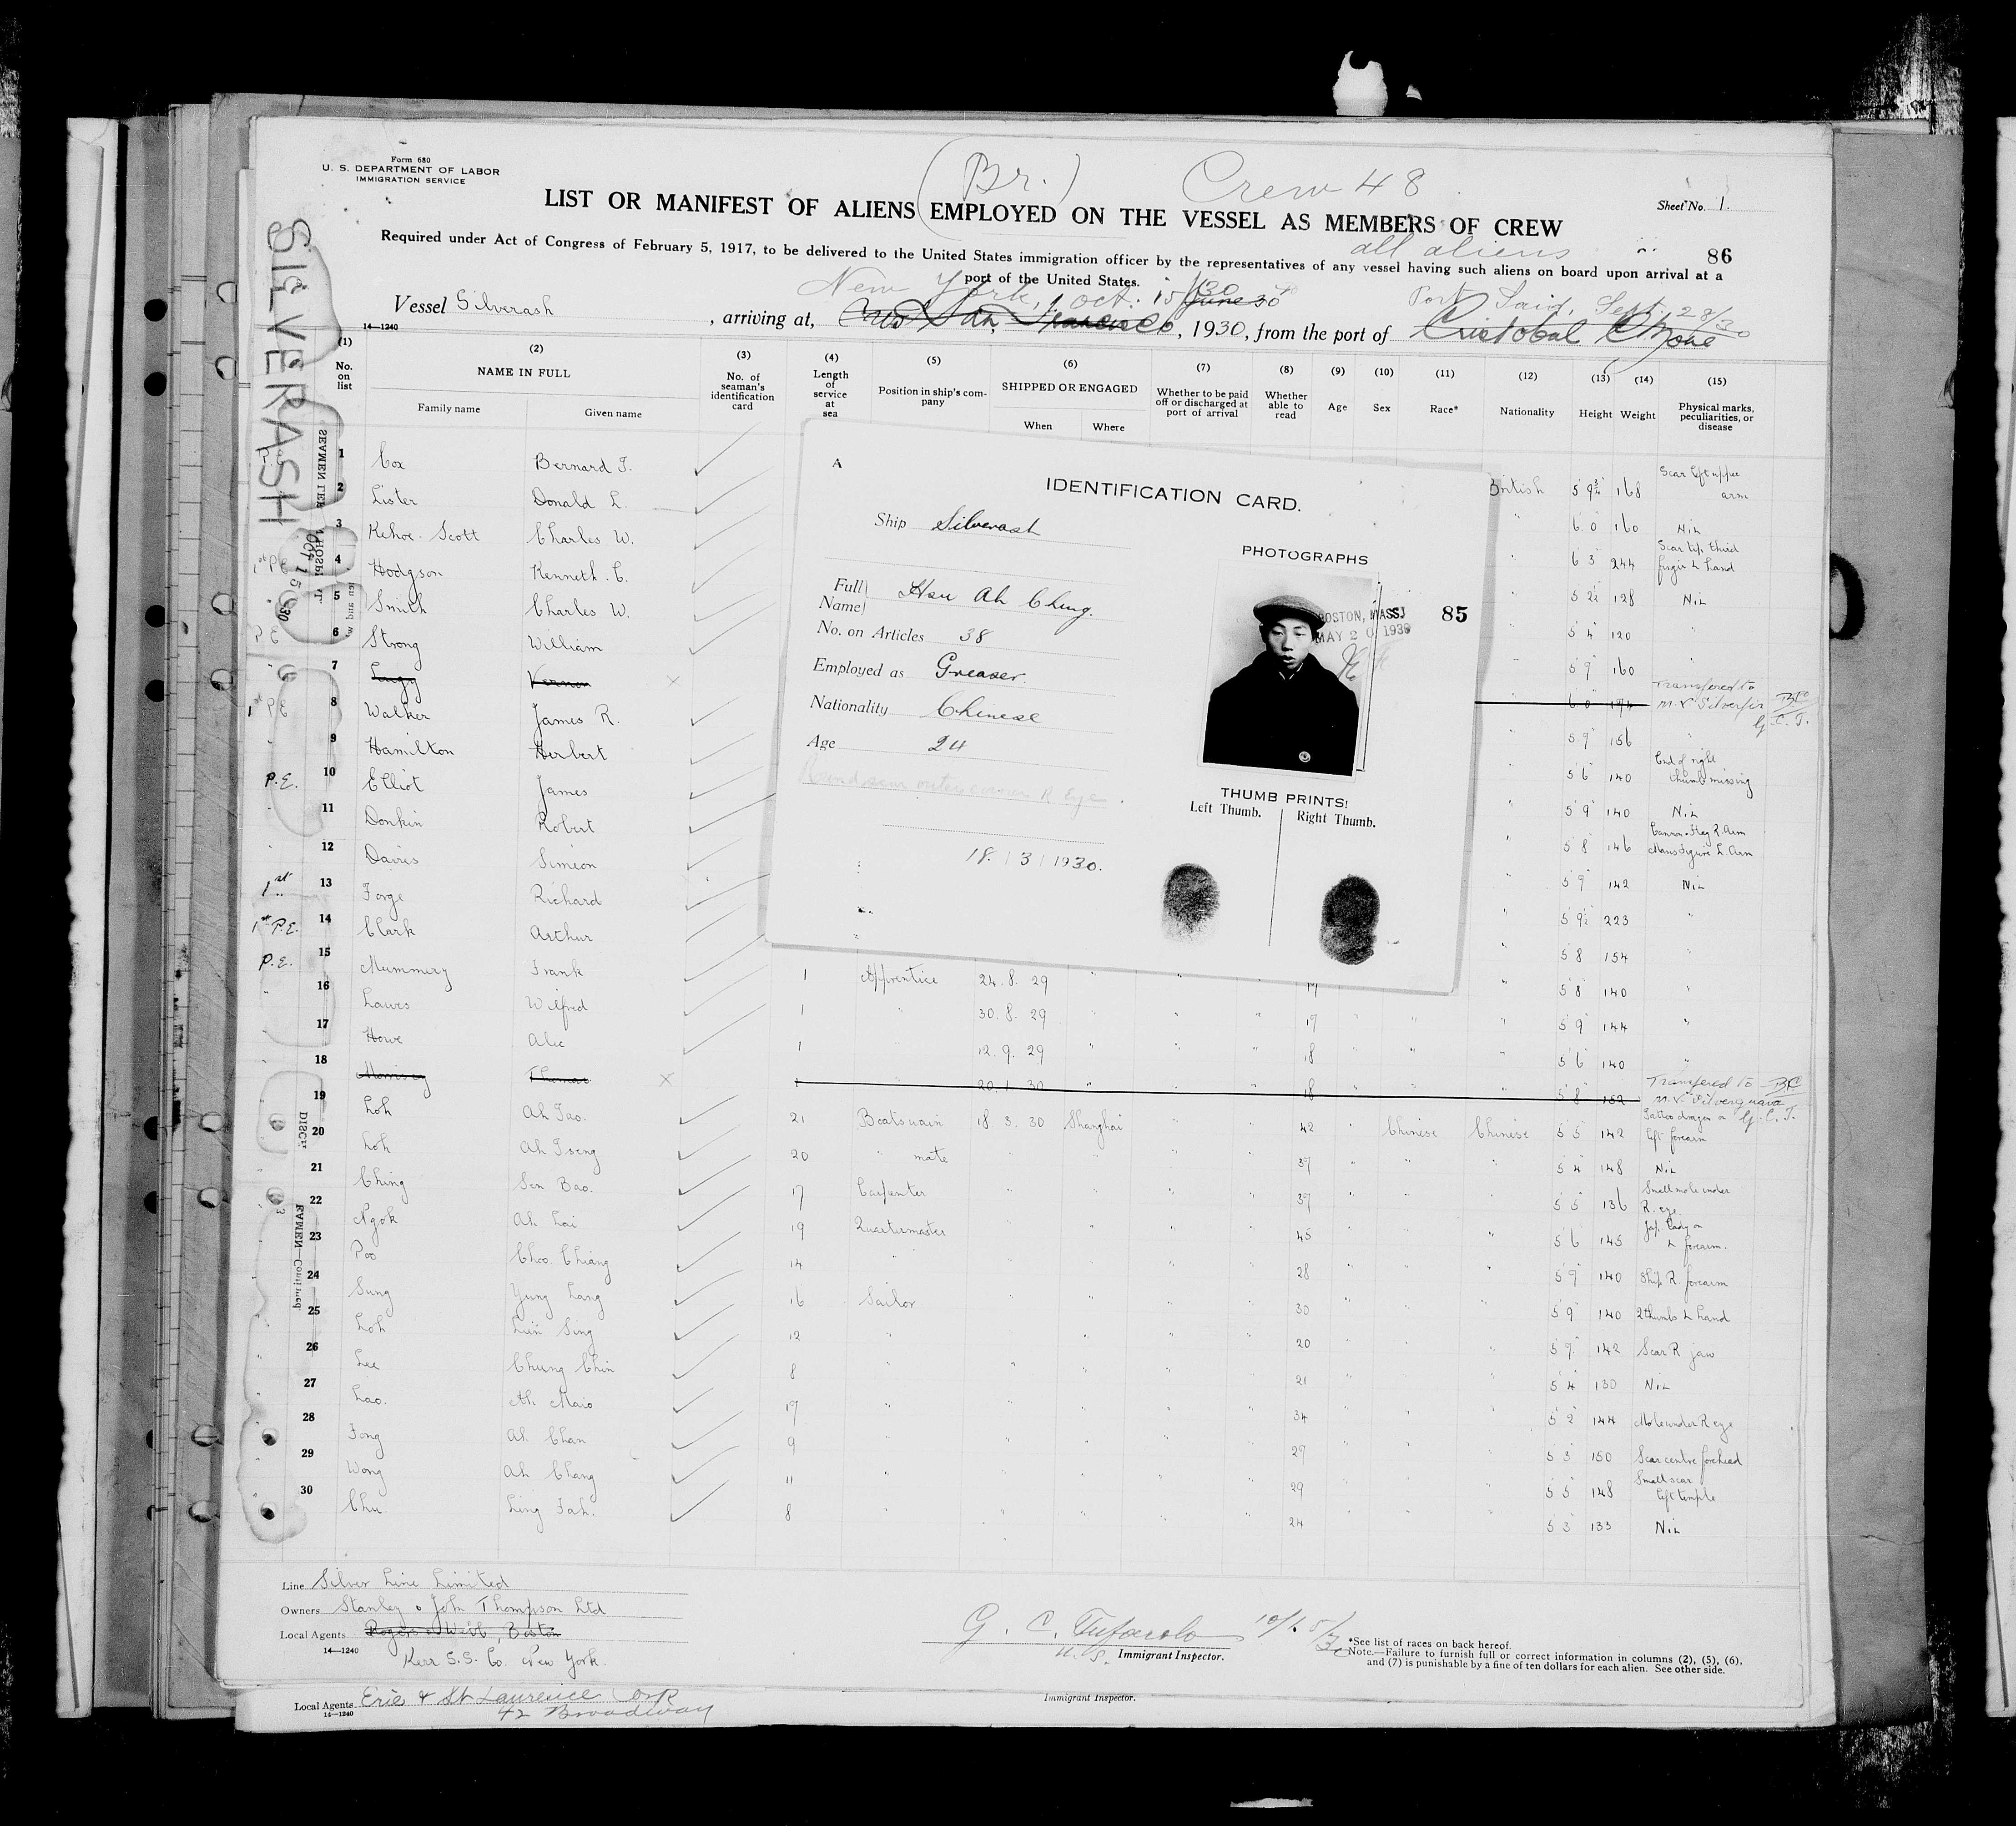 Form 680
U. S. DEPARTMENT OF LABOR
IMMIGRATION SERVICE
(Br.) Crew 48
Sheet No. 1.
LIST OR MANIFEST OF ALIENS EMPLOYED ON THE VESSEL AS MEMBERS OF CREW
all aliens
86
Required under Act of Congress of February 5, 1917, to be delivered to the United States immigration officer by the representatives of any vessel having such aliens on board upon arrival at a
port of the United States.
New York, Oct. 15/30 Port Said, Sept. 28/30
Vessel Silverash, arriving at, San Francisco, 1930, from the port of Cristobal
14—1240
SILVERASH
(1) (2) (3) (4) (5) (6) (7) (8) (9) (10) (11) (12) (13) (14) (15)
No. on list
NAME IN FULL
Family name Given name
No. of seaman's identification card
Length of service at sea
Position in ship's company
SHIPPED OR ENGAGED
When Where
Whether to be paid off or discharged at port of arrival
Whether able to read
Age Sex Race* Nationality Height Weight
Physical marks, peculiarities, or disease
1 Cox Bernard J. British 5 9¾ 168 Scar left upper arm
2 Lister Donald L. " 6 0 160 Nil
3 Kehoe-Scott Charles W. " 6 3 244 Scar tip third finger L hand
4 1st PE Hodgson Kenneth C. " 5 2½ 128 Nil
5 Smith Charles W. " 5 4 120 "
6 P E Strong William " 5 9 160 "
7 Vernon 6 0 174 Transfered to M.V. Silverfir
8 1st PE Walker James R. " 5 9 156 "
9 Hamilton Herbert " 5 6 140 End of right thumb missing
10 P.E. Elliot James " 5 9 140 Nil
11 Donkin Robert " 5 8 146 Cannon & Flag R. Arm L. Arm
12 Davies Simeon " 5 9 142 Nil
13 1st Forge Richard " 5 9½ 223 "
14 1st P.E. Clark Arthur " 5 8 154 "
15 P.E. Mummery Frank 1 Apprentice 24. 8. 29 " " 17 " 5 8 140 "
16 Lawes Wilfred 1 " 30. 8. 29 " " " 19 " " " 5 9 144 "
17 Howe Alec 1 12. 9. 29 " " " 18 " " " 5 6 140 "
18 Morrisey Thomas 1 20. 1. 30 " " " 18 " " " 5 8 152 Transfered to M.V. Silverguava
19 Loh Ah Tao. 21 Boatswain 18. 3. 30 Shanghai " " 42 " Chinese Chinese 5 5 142 Tattoo dragon on left forearm
20 Loh Ah Tseng 20 " mate 37 " " " 5 4 148 Nil
21 Ching Sen Bao. 17 Carpenter " 37 " " 5 5 136 Small mole under R. eye
22 Ngok Ah Lai 19 Quartermaster " 45 " " 5 6 145 Jap. Lady on L forearm.
23 Poo Choo Chiang 14 " 28 " " 5 9 140 Ship R. forearm
24 Sung Yung Lang 16 Sailor 30 " " 5 9 140 2 thumbs L hand
25 Loh Lien Sing 12 " 20 " " 5 9 142 Scar R jaw
26 Lee Chung Chin 8 " 21 " " 5 4 130 Nil
27 Lao. Ah Maio 17 " 34 " " 5 2 144 Mole under R eye
28 Fong Ah Chan 9 " 29 " " 5 3 150 Scar centre forehead
29 Wong Ah Chang 11 " 29 " " 5 5 148 Small scar left temple
30 Chu. Ling Fah. 8 24 " " 5 3 133 Nil
A
IDENTIFICATION CARD.
Ship Silverash
PHOTOGRAPHS
Full Name Hsu Ah Ching.
BOSTON, MASS.
MAY 20 1930
85
No. on Articles 38
Employed as Greaser.
Nationality Chinese
Age 24
Round scar outer corner R Eye.
THUMB PRINTS!
Left Thumb. Right Thumb.
18. / 3 / 1930.
Line Silver Line Limited
Owners Stanley & John Thompson Ltd
Local Agents Rogers & Webb, Boston
14—1240
Kerr S.S. Co. New York.
G. C. Tufarolo 10/15/30
U. S. Immigrant Inspector.
*See list of races on back hereof.
Note.—Failure to furnish full or correct information in columns (2), (5), (6),
and (7) is punishable by a fine of ten dollars for each alien. See other side.
Local Agents Erie & St Laurence Corp
14—1240
42 Broadway
Immigrant Inspector.